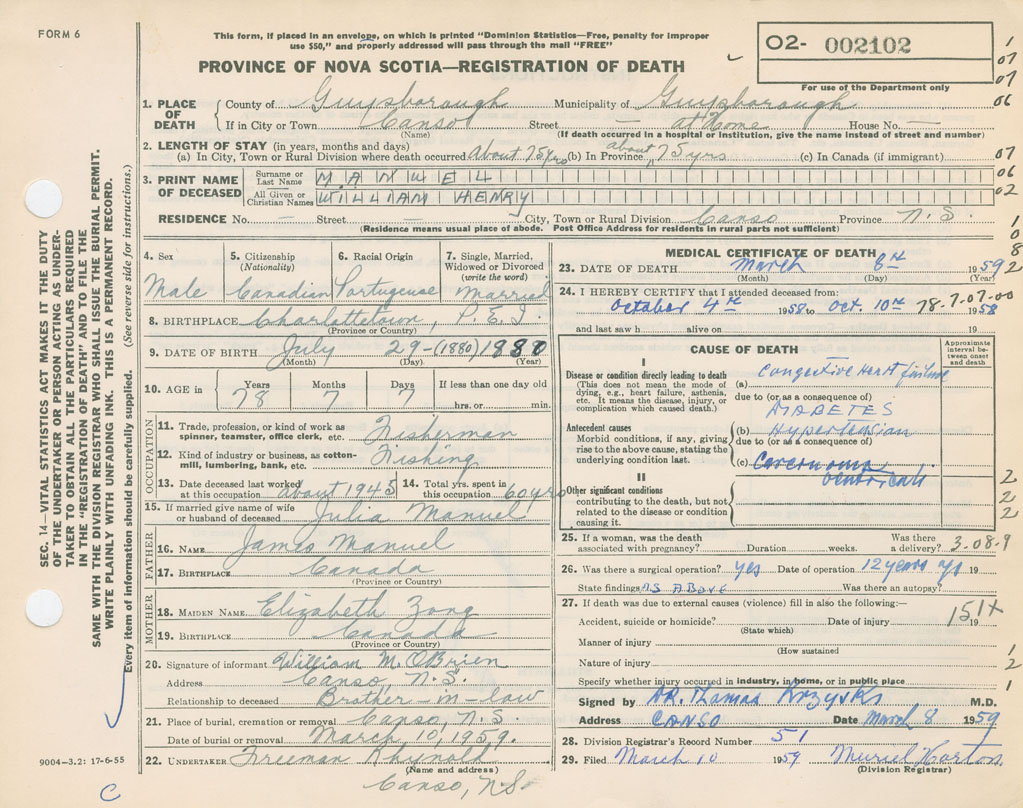 FORM 6
This form, if placed in an envelope, on which is printed "Dominion Statistics—Free, penalty for improper
use $50," and properly addressed will pass through the mail "FREE"
O2- 002102
For use of the Department only
PROVINCE OF NOVA SCOTIA—REGISTRATION OF DEATH
1. PLACE OF DEATH { County of Guysborough Municipality of Guysborough
If in City or Town Canso Street — at Home House No. —
(Name) (If death occurred in a hospital or institution, give the name instead of street and number)
2. LENGTH OF STAY (in years, months and days)
(a) In City, Town or Rural Division where death occurred About 75 yrs (b) In Province about 75 yrs (c) In Canada (if immigrant)
3. PRINT NAME OF DECEASED { Surname or Last Name MANUEL
All Given or Christian Names WILLIAM HENRY
RESIDENCE No. — Street — City, Town or Rural Division Canso Province N.S.
(Residence means usual place of abode. Post Office Address for residents in rural parts not sufficient)
4. Sex Male
5. Citizenship (Nationality) Canadian
6. Racial Origin Portuguese
7. Single, Married, Widowed or Divorced (write the word) Married
8. BIRTHPLACE Charlattetown, P.E.I.
(Province or Country)
9. DATE OF BIRTH July 29-(1880) 1880
(Month) (Day) (Year)
10. AGE in Years 78 Months 7 Days 7 If less than one day old hrs. or min.
OCCUPATION
11. Trade, profession, or kind of work as spinner, teamster, office clerk, etc. Fisherman
12. Kind of industry or business, as cotton-mill, lumbering, bank, etc. Fishing
13. Date deceased last worked at this occupation about 1945 14. Total yrs. spent in this occupation 60 yrs
15. If married give name of wife or husband of deceased Julia Manuel
FATHER
16. NAME James Manuel
17. BIRTHPLACE Canada
(Province or Country)
MOTHER
18. MAIDEN NAME Elizabeth Zong
19. BIRTHPLACE Canada
(Province or Country)
20. Signature of informant William M. O'Brien
Address Canso N.S.
Relationship to deceased Brother-in-law
21. Place of burial, cremation or removal Canso, N.S.
Date of burial or removal March 10, 1959.
22. UNDERTAKER Freeman Rhynold
(Name and address)
Canso, N.S.
MEDICAL CERTIFICATE OF DEATH
23. DATE OF DEATH March 8th 1959
(Month) (Day) (Year)
24. I HEREBY CERTIFY that I attended deceased from:
October 4th 1958 to Oct. 10th 1958
78-7-07-00
and last saw h alive on 19
CAUSE OF DEATH
Approximate interval between onset and death
I
Disease or condition directly leading to death
(This does not mean the mode of dying, e.g., heart failure, asthenia, etc. It means the disease, injury, or complication which caused death.)
(a) Congestive Hert failure
due to (or as a consequence of)
DIABETES
Antecedent causes
Morbid conditions, if any, giving rise to the above cause, stating the underlying condition last.
(b) Hypertension
due to (or as a consequence of)
(c)
II
Other significant conditions
contributing to the death, but not related to the disease or condition causing it.
25. If a woman, was the death associated with pregnancy? Duration weeks. Was there a delivery?
3.08-9
26. Was there a surgical operation? yes Date of operation 12 years 19
State findings AS ABOVE Was there an autopsy?
27. If death was due to external causes (violence) fill in also the following:—
Accident, suicide or homicide? Date of injury 19
(State which)
151X
Manner of injury
(How sustained
Nature of injury
Specify whether injury occurred in industry, in home, or in public place
Signed by DR. Thomas Krzyski M.D.
Address CANSO Date March 8 1959
28. Division Registrar's Record Number 51
29. Filed March 10 1959 Muriel Horton
(Division Registrar)
1
07
07
06
07
06
02
1
0
8
2
2
2
2
1
2
1
SEC. 14—VITAL STATISTICS ACT MAKES IT THE DUTY
OF THE UNDERTAKER OR PERSON ACTING AS UNDER-
TAKER TO OBTAIN ALL THE PARTICULARS REQUIRED
IN THE "REGISTRATION OF DEATH" AND TO FILE THE
SAME WITH THE DIVISION REGISTRAR WHO SHALL ISSUE THE BURIAL PERMIT.
WRITE PLAINLY WITH UNFADING INK. THIS IS A PERMANENT RECORD.
Every item of information should be carefully supplied. (See reverse side for instructions.)
9004-3.2: 17-6-55
C